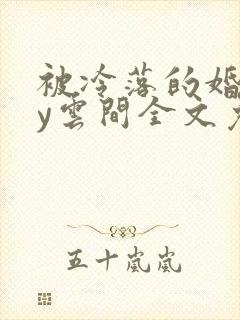 被冷落的婚
y雲間全文免
五十嵐嵐